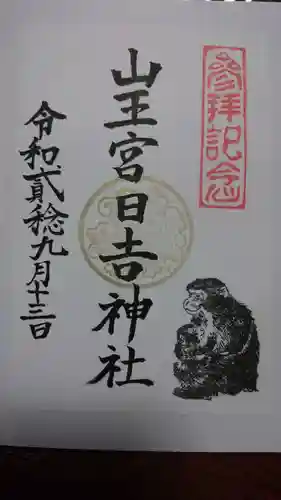 參拜記念
山王宮日吉神社
令和貳稔九月十三日